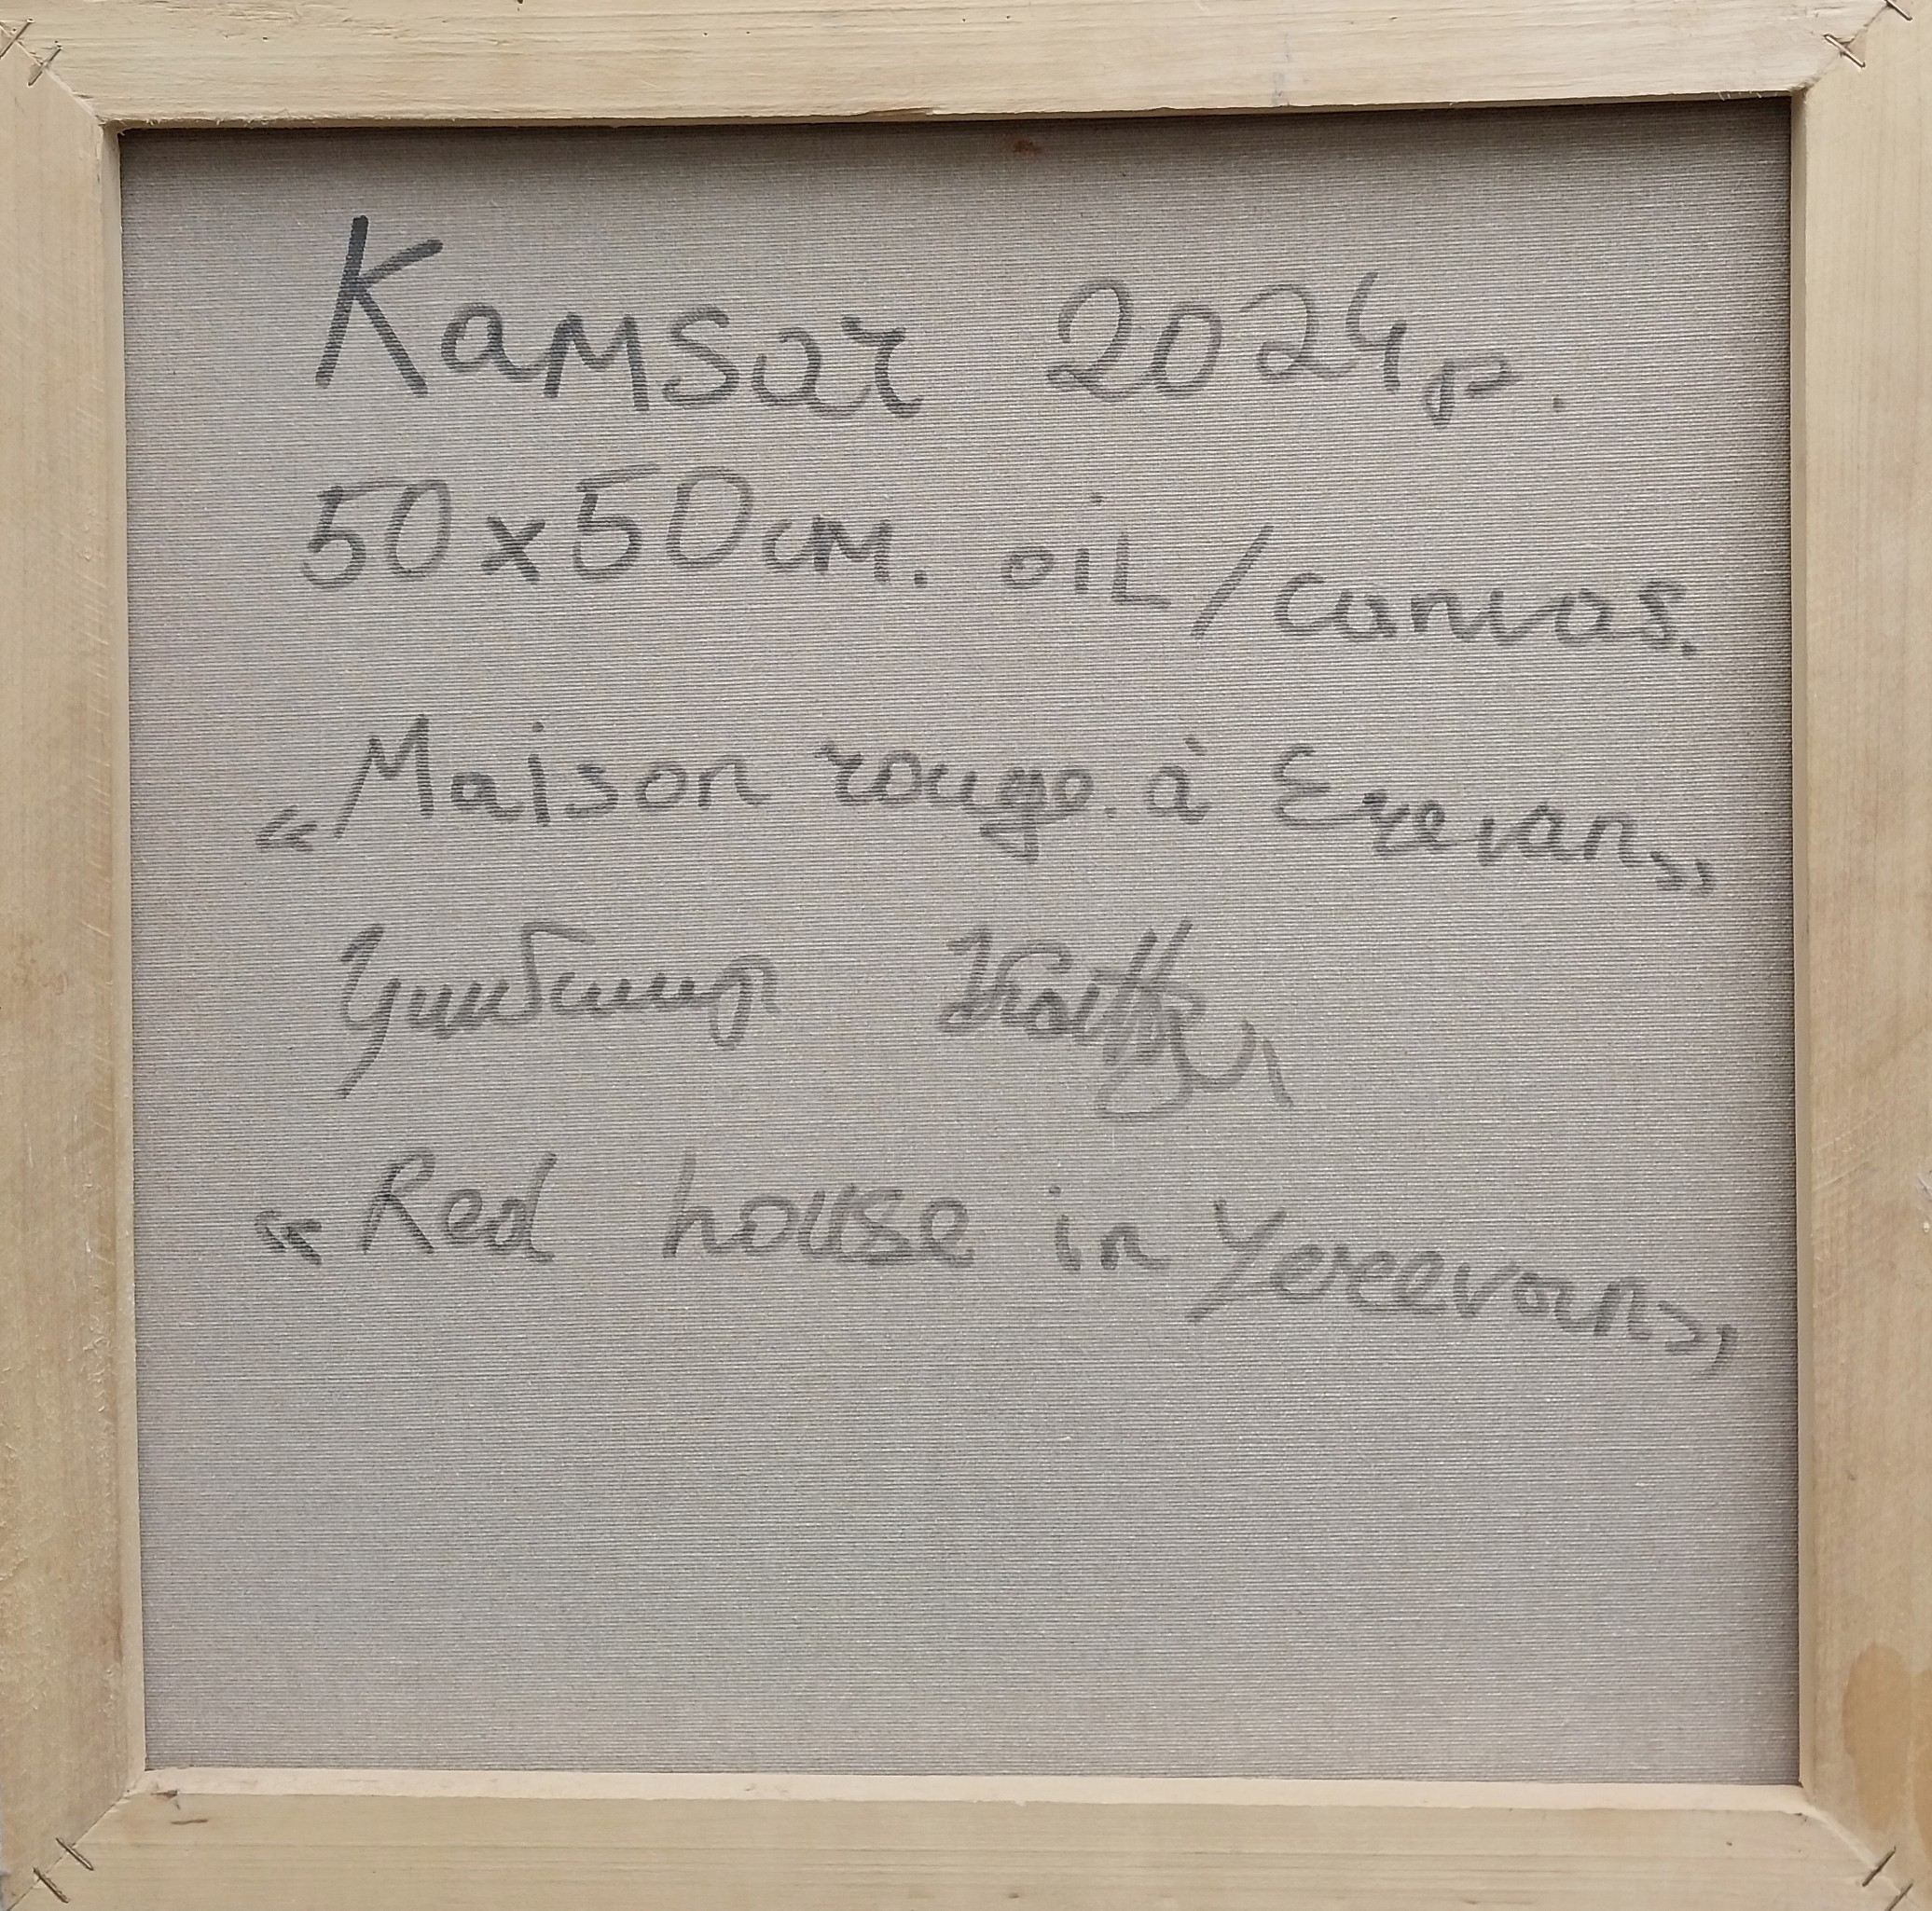 Kamsar 2024թ.
50x50cm. oil/canvas.
„Maison rouge. à Erevan„
Կամսար
„Red house in Yereevan„